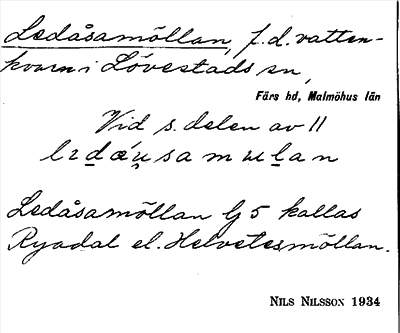 Ledåsamöllan, f.d. vatten-
kvarn i Lövestads sn,
Färs hd, Malmöhus län
Vid s. delen av 11
Ledåsamöllan Lj 5 kallas
Ryadal el. Helvetesmöllan.
NILS NILSSON 1934